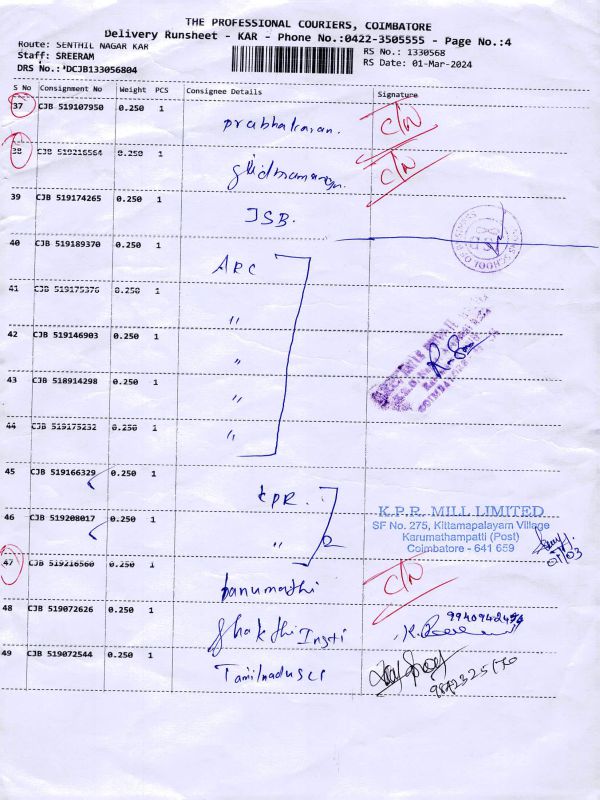 THE PROFESSIONAL COURIERS, COIMBATORE
Delivery Runsheet - KAR - Phone No.:0422-3505555 - Page No.:4
Route: SENTHIL NAGAR KAR
RS No.: 1330568
Staff: SREERAM
RS Date: 01-Mar-2024
DRS No.: *DCJB133056804
S No Consignment No Weight PCS Consignee Details Signature
37 CJB 519107950 0.250 1 prabhakaran. C/N
38 CJB 519216564 0.250 1 C/N
39 CJB 519174265 0.250 1 JSB.
40 CJB 519189370 0.250 1 ARC
41 CJB 519175376 0.250 1 "
42 CJB 519146903 0.250 1 "
43 CJB 518914298 0.250 1 "
44 CJB 519175232 0.250 1 "
45 CJB 519166329 0.250 1 KPR.
K.P.R. MILL LIMITED
SF No. 275, Kittampalayam Village
Karumathampatti (Post)
Coimbatore - 641 659
01/03
46 CJB 519208017 0.250 1 "
47 CJB 519216560 0.250 1 banumathi C/N
48 CJB 519072626 0.250 1 Shakthi
49 CJB 519072544 0.250 1